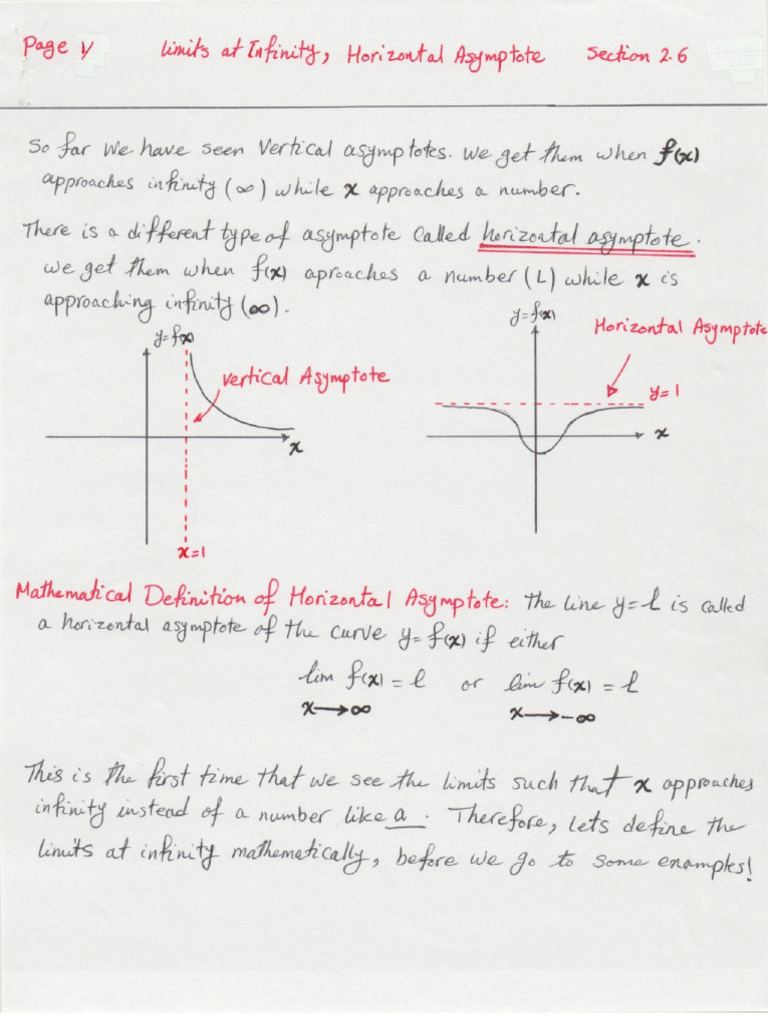 Page 1/ Limits at Infinity, Horizontal Asymptote Section 2.6
So far we have seen Vertical asymptotes. we get them when f(x)
approaches infinity (∞) while x approaches a number.
There is a different type of asymptote called horizontal asymptote.
we get them when f(x) aproaches a number (L) while x is
approaching infinity (∞).
y=f(x)
Vertical Asymptote
x
x=1
y=f(x)
Horizontal Asymptote
y=1
x
Mathematical Definition of Horizontal Asymptote: The line y=l is called
a horizontal asymptote of the curve y=f(x) if either
lim f(x) = l or lim f(x) = l
x→∞ x→-∞
This is the first time that we see the limits such that x approaches
infinity instead of a number like a. Therefore, lets define the
limits at infinity mathematically, before we go to some examples!